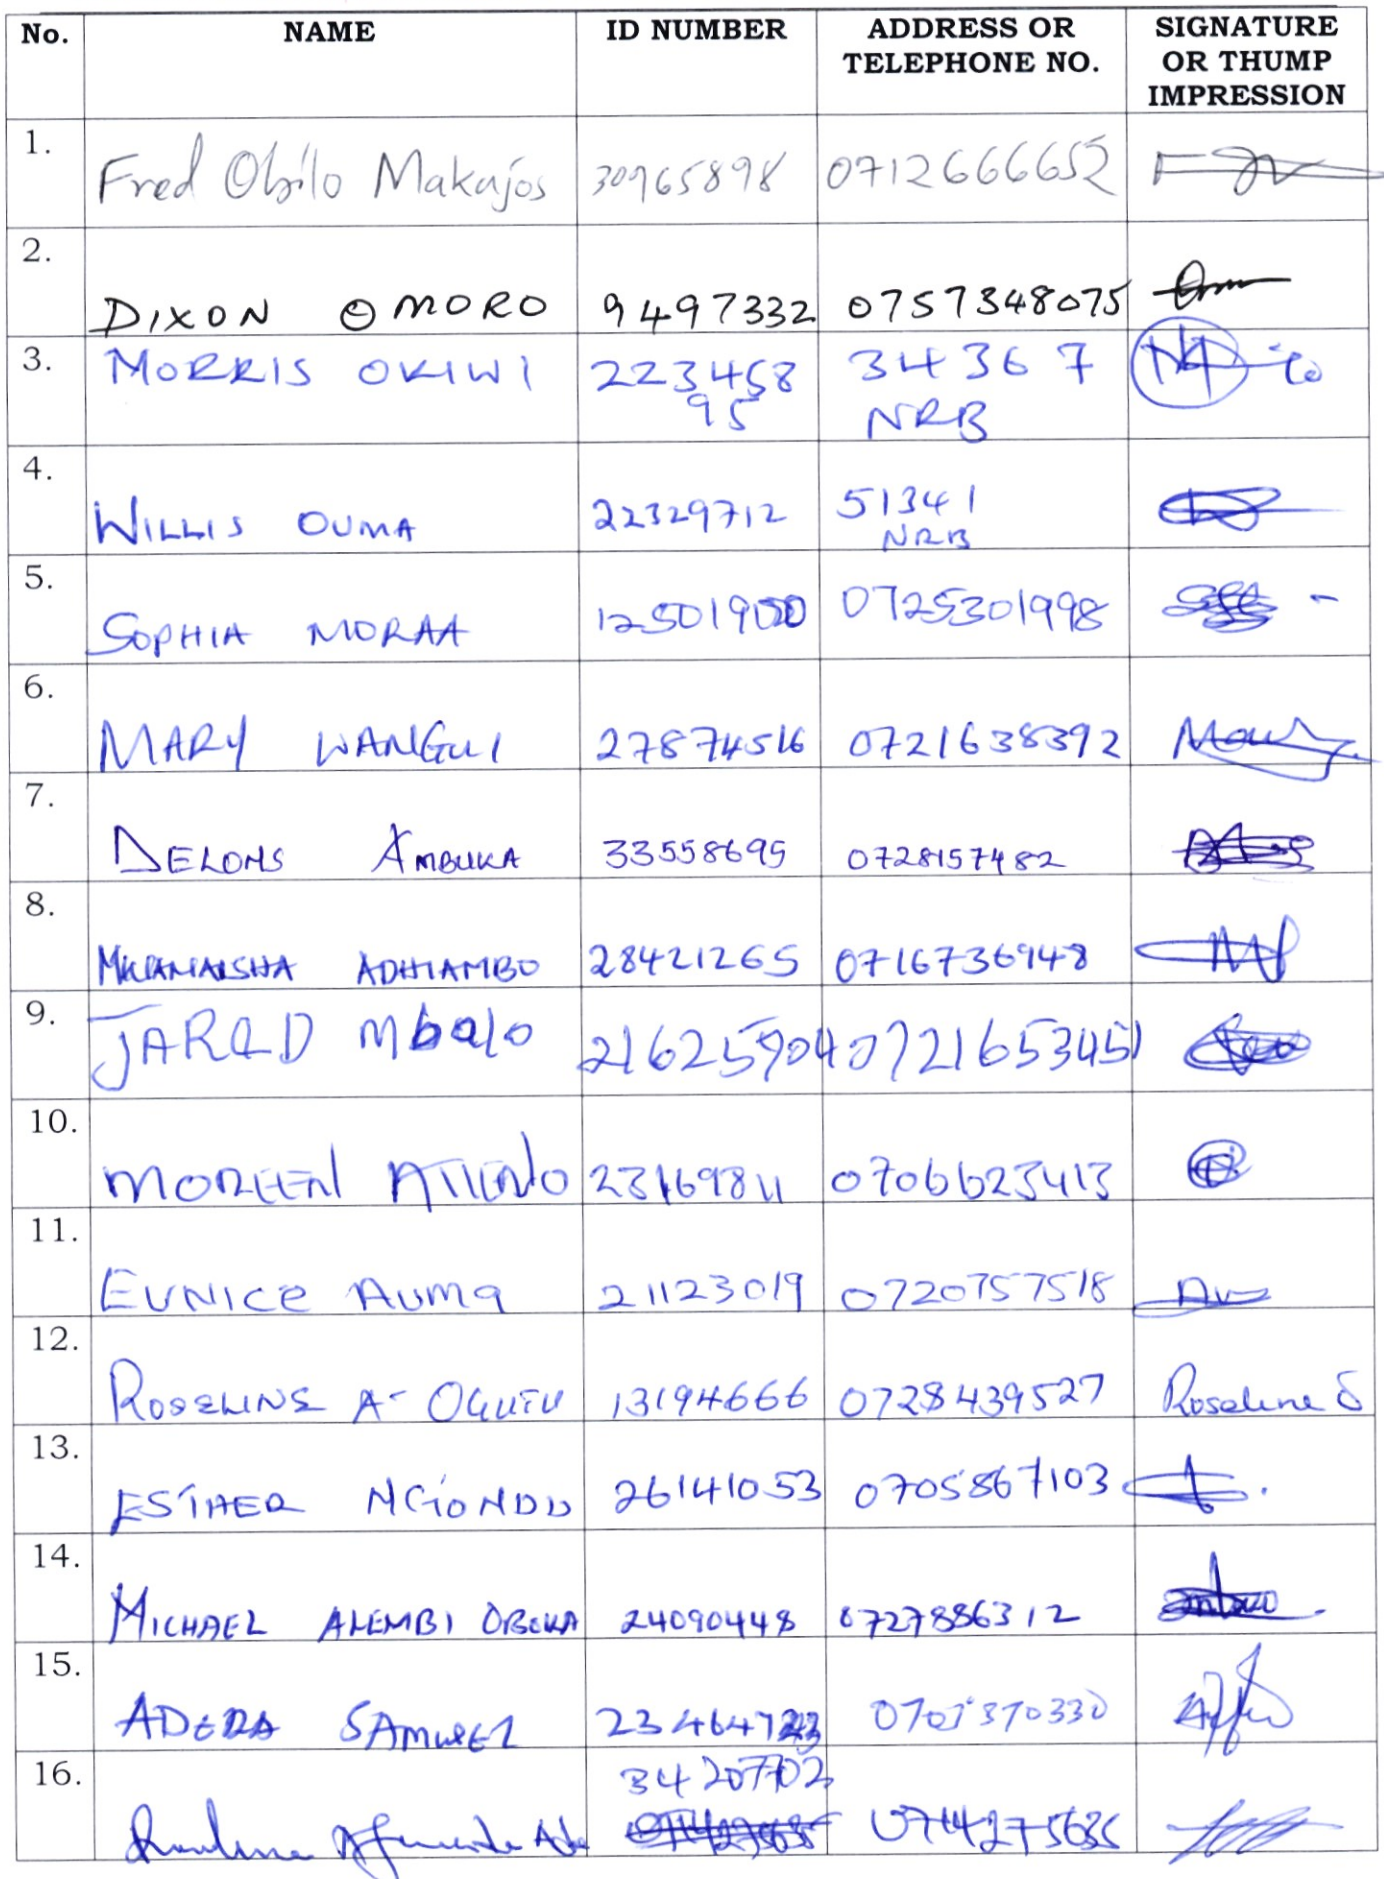 No. NAME ID NUMBER ADDRESS OR TELEPHONE NO. SIGNATURE OR THUMP IMPRESSION
1. Fred Obilo Makajos 30965898 0712666652
2. DIXON OMORO 9497332 0757348075
3. MORRIS OKIWI 22345895 34367 NRB
4. WILLIS OUMA 22329712 51341 NRB
5. SOPHIA MORAA 0725301998
6. MARY WANGUI 27874516 0721638392
7. DELOMS AMBUKA 33558695 0728157482
8. ADHIAMBO 28421265 0716736948
9. JARED Mbalo 21625904 0721653451
10. MOREEN ATIENO 23169811 0706623413
11. EUNICE AUMA 21123019 0720757518
12. ROSELINE A- 13194666 0728439527 Roseline
13. ESTHER 26141053 0705867103
14. MICHAEL ALEMBI 24090448 0727886312
15. ADERA SAMUEL
16. 34207702